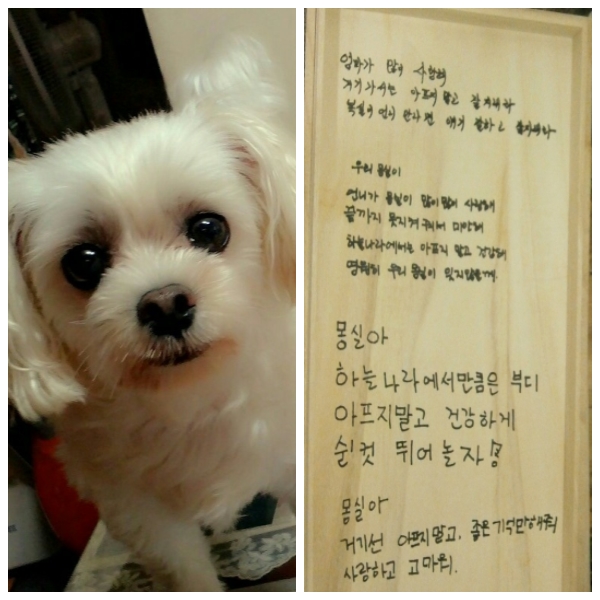 엄마가 많이 사랑해
거기 가서는 아프지 말고 잘 지내라
언니 만나면 얘기 잘하고 잘 지내라
우리 몽실이
언니가 몽실이 많이많이 사랑해
끝까지 못지켜줘서 미안해
하늘나라에서는 아프지 말고 건강해
영원히 우리 몽실이 잊지않을게.
몽실아
하늘나라에서만큼은 부디
아프지말고 건강하게
실컷 뛰어놀자!
몽실아
거기선 아프지말고, 좋은기억만해줘
사랑하고 고마워.